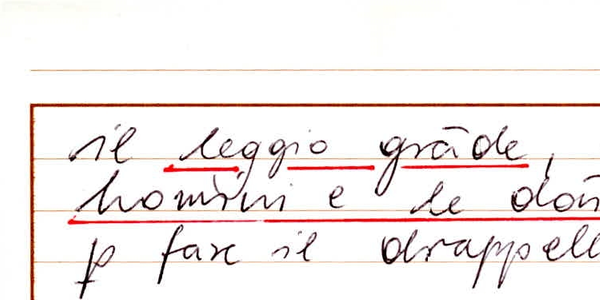 il leggio grāde,
homini e le don̄
p̱ fare il drappell